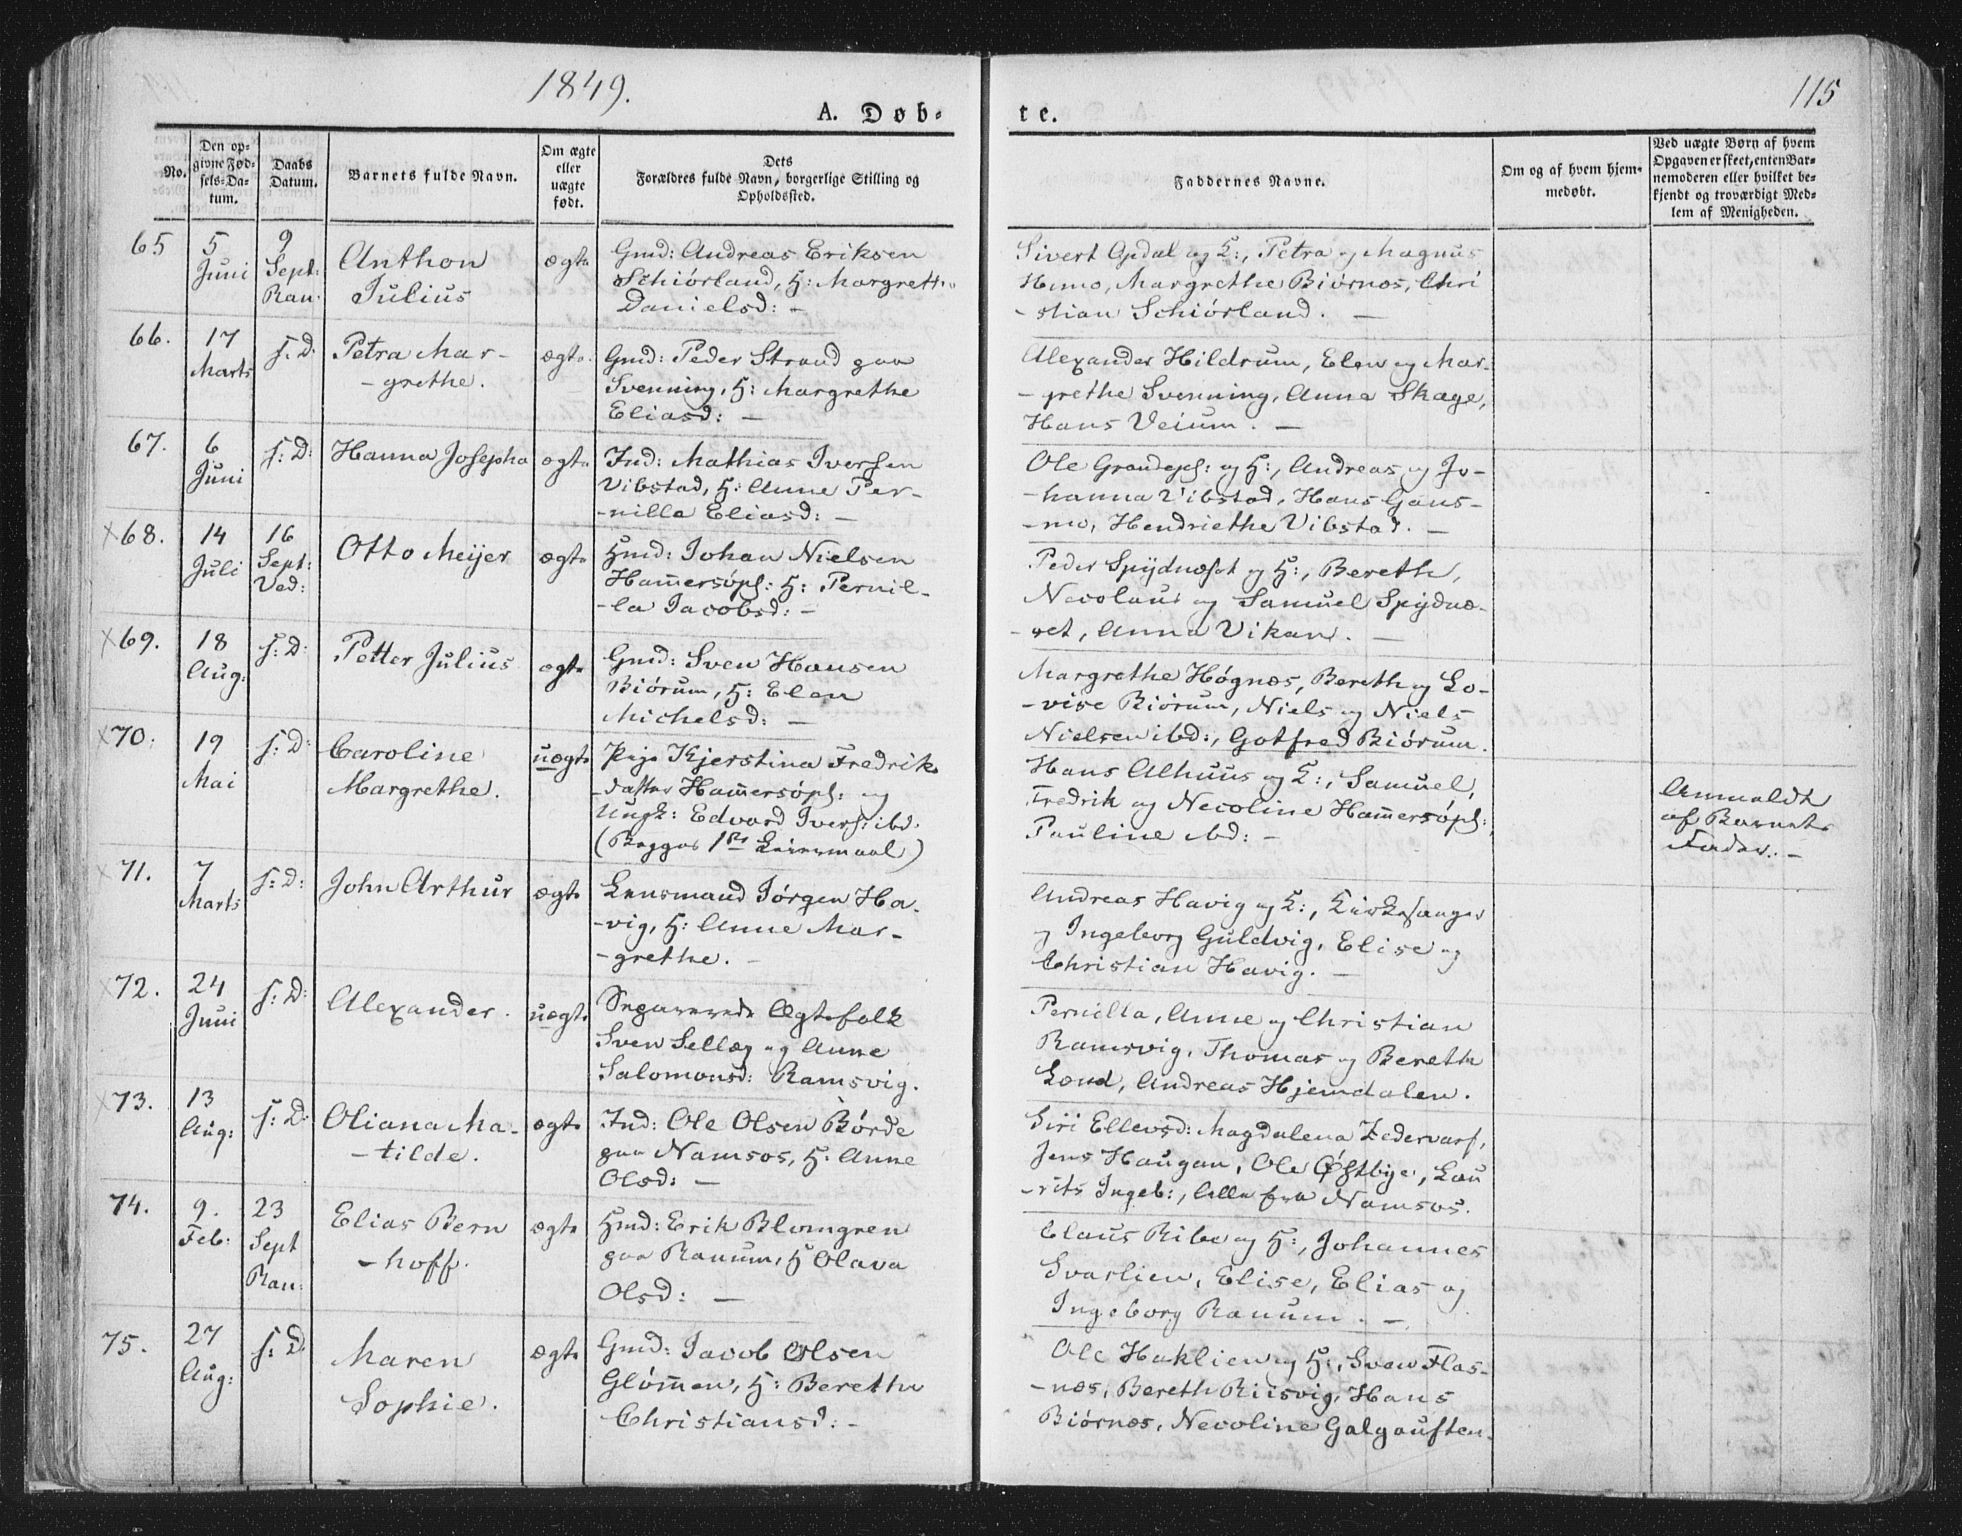 1849.
115
A. Døb-
te.
No.
Den op-
givne Fød-
sels-Da-
tum.
Daabs
Datum.
Barnets fulde Navn.
Om ægte
eller
uægte
født.
Dets
Forældres fulde Navn, borgerlige Stilling og
Opholdssted.
Faddernes Navne.
Om og af hvem hjem-
medøbt.
Ved uægte Børn af hvem
Opgaven er skeet, enten Bar-
nemoderen eller hvilket be-
kjendt og troværdigt Med-
lem af Menigheden.
65
5
Juni
9
Sept:
Ran:
Anthon
Julius
ægte
Gmd: Andreas Eriksen
Schiørland, H: Margrethe
Danielsd: -
Sivert Opdal og H:, Petra og Magnus
Hemo, Margrethe Biørnes, Chri
-stian Schiørland. -
66.
17
Marts
s. D.
Petra Mar-
-grethe.
ægte.
Gmd: Peder Strand paa
Svenning, H: Margrethe
Eliasd: -
Alexander Hildrum, Elen og Mar-
-grethe Svenning, Anna Skage,
Hans Veium. -
67.
6
Juni
s: D:
Hanna Josepha
ægte
Ind: Mathias Iversen
Vibstad, H: Anne Per-
-nilla Eliasd: -
Ole Grandeps: og H:, Andreas og Jo-
-hanna Vibstad, Hans Gans-
-mo, Hendriethe Vibstad. -
×68.
14
Juli
16
Sept:
Ved:
Otto Meijer
ægte
Hmd: Johan Nielsen
Ham̅ersøpl: H: Pernil-
-la Jacobsd: -
Peder Spydnæset og H:, Bereth,
Nicolaus og Samuel Spydnæ-
-set, Anna Vikan. -
×69.
18
Aug:
s: D:
Petter Julius
ægte
Gmd: Sven Hansen
Biørum, H: Elen
Michelsd: -
Margrethe Høgnes, Bereth og Lo-
-vise Biørum, Niels og Niels
Nielsen ibd:, Gotfred Biørum.
×70.
19
Mai
s: D:
Caroline
Margrethe.
uægte
Pige Kjerstina Fredriks
-datter Ham̅ersøpl: og
Ungk: Edvard Ivers: ibd.
(Begges 1ste Leiermaal)
Hans Alhuus og H:, Samuel,
Fredrik og Necoline Ham̅ersøpl:,
Pauline ibd: -
Anmeldt
af Barnets
Fader. -
×71.
7
Marts
s: D:
John Arthur
ægte
Lensmand Jørgen Ha-
-vig, H: Anne Mar-
-grethe. -
Andreas Havig og H:, Kirkesanger
og Ingeborg Guldvig, Elise og
Christian Havig. -
×72.
24
Juni
s: D:
Alexander.
uægte
Separerede Ægtefolk
Sven Sellæg og Anne
Salomonsd: Ramsvig.
Pernilla, Anne og Christian
Ramsvig, Thomas og Bereth
Lænd, Andreas Hjemdalen.
×73.
13
Aug:
s: D:
Oliana Ma-
-tilde.
ægte
Ind: Ole Olsen Børde
paa Namsos, H: Anne
Olsd: -
Siri Ellevsd: Magdalena Federvarf,
Jens Haugan, Ole Østbye, Lau
-rits Ingeb:, Alle fra Namsos.
74.
9.
Feb:
23
Sept
Ran:
Elias Bern
-hoff.
ægte
Hmd: Erik Blomgren
paa Ranum, H Olava
Olsd: -
Claus Ribe og H:, Johannes
Svarlien, Elise, Elias og
Ingeborg Ranum. -
75.
27
Aug:
s: D.
Maren
Sophie.
ægte
Gmd: Jacob Olsen
Gløm̅en, H: Berethe
Christiansd: -
Ole Haklien og H:, Sven Flas-
-næs, Bereth Riisvig, Hans
Biørnes, Necoline Galgauften.